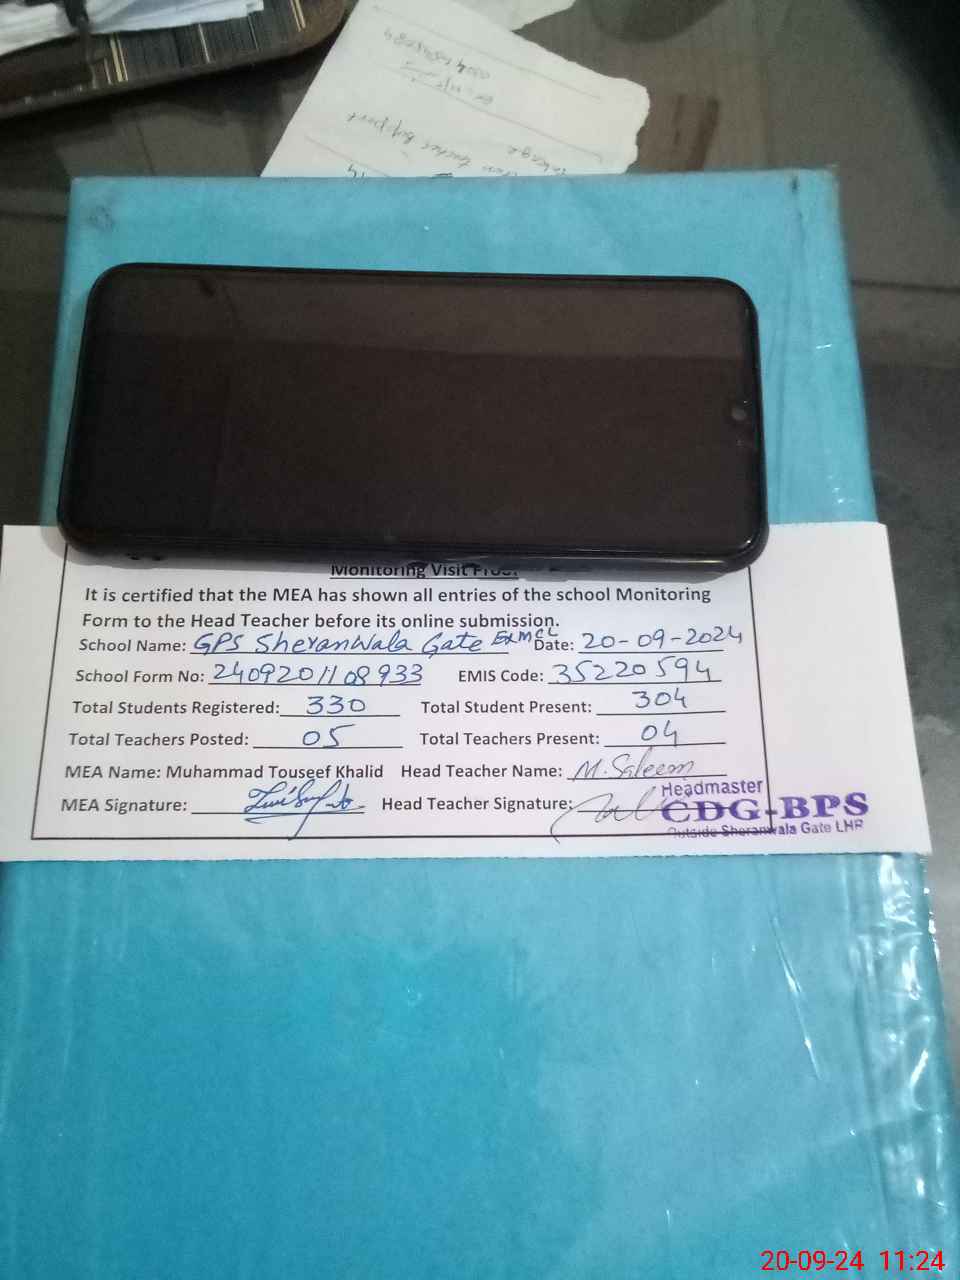 Teacher Support
Monitoring Visit Proof
It is certified that the MEA has shown all entries of the school Monitoring
Form to the Head Teacher before its online submission.
School Name: GPS Sheranwala Gate ExMCL Date: 20-09-2024
School Form No: 2409201108933 EMIS Code: 35220594
Total Students Registered: 330 Total Student Present: 304
Total Teachers Posted: 05 Total Teachers Present: 04
MEA Name: Muhammad Touseef Khalid Head Teacher Name: M. Saleem
MEA Signature: Head Teacher Signature:
Headmaster
CDG-BPS
Outside Sheranwala Gate LHR
20-09-24 11:24